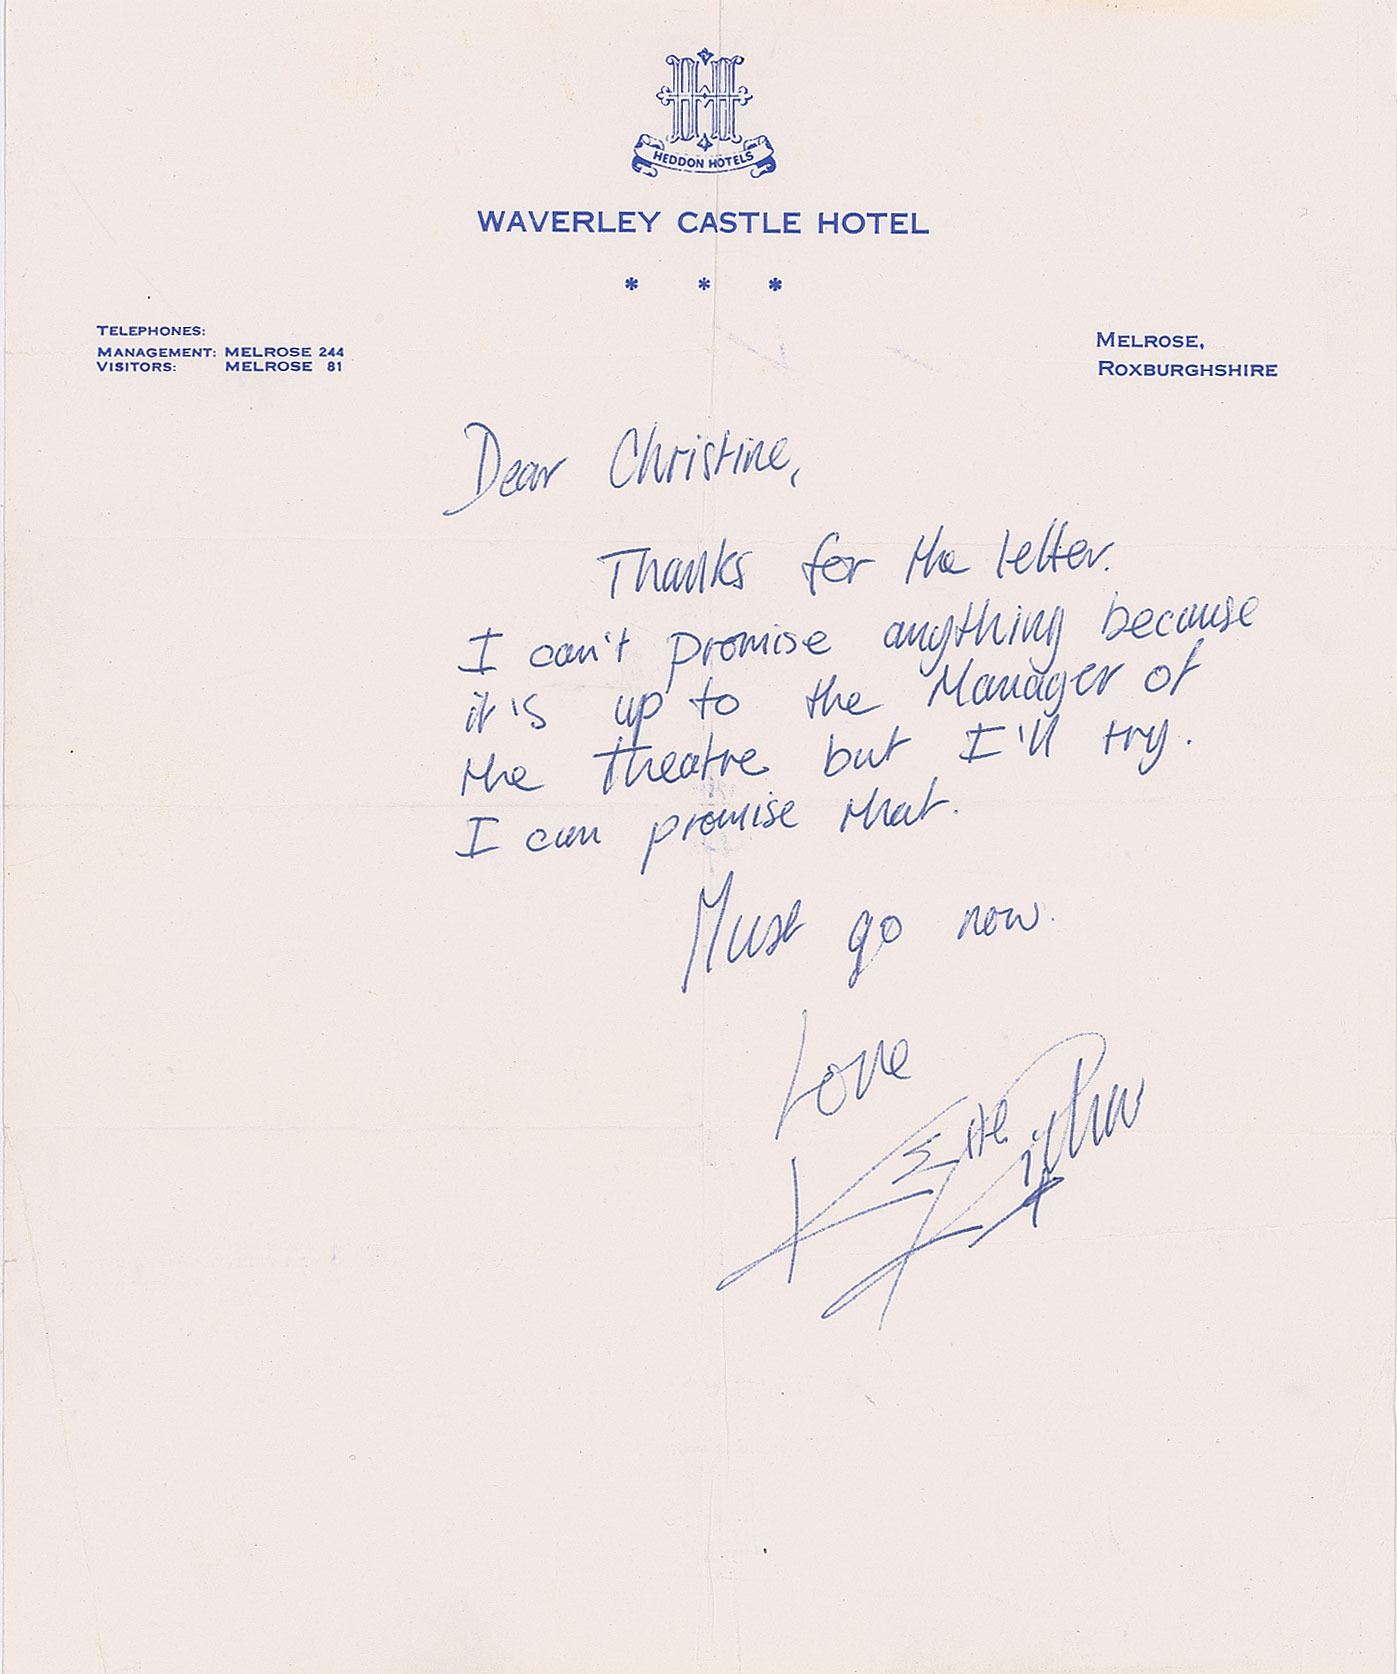 HH
HEDDON HOTELS
WAVERLEY CASTLE HOTEL
* * *
TELEPHONES:
MANAGEMENT: MELROSE 244
VISITORS: MELROSE 81
MELROSE,
ROXBURGHSHIRE
Dear Christine,
Thanks for the letter.
I can't promise anything because
it's up to the Manager of
the theatre but I'll try.
I can promise that.
Must go now.
Love
Keith